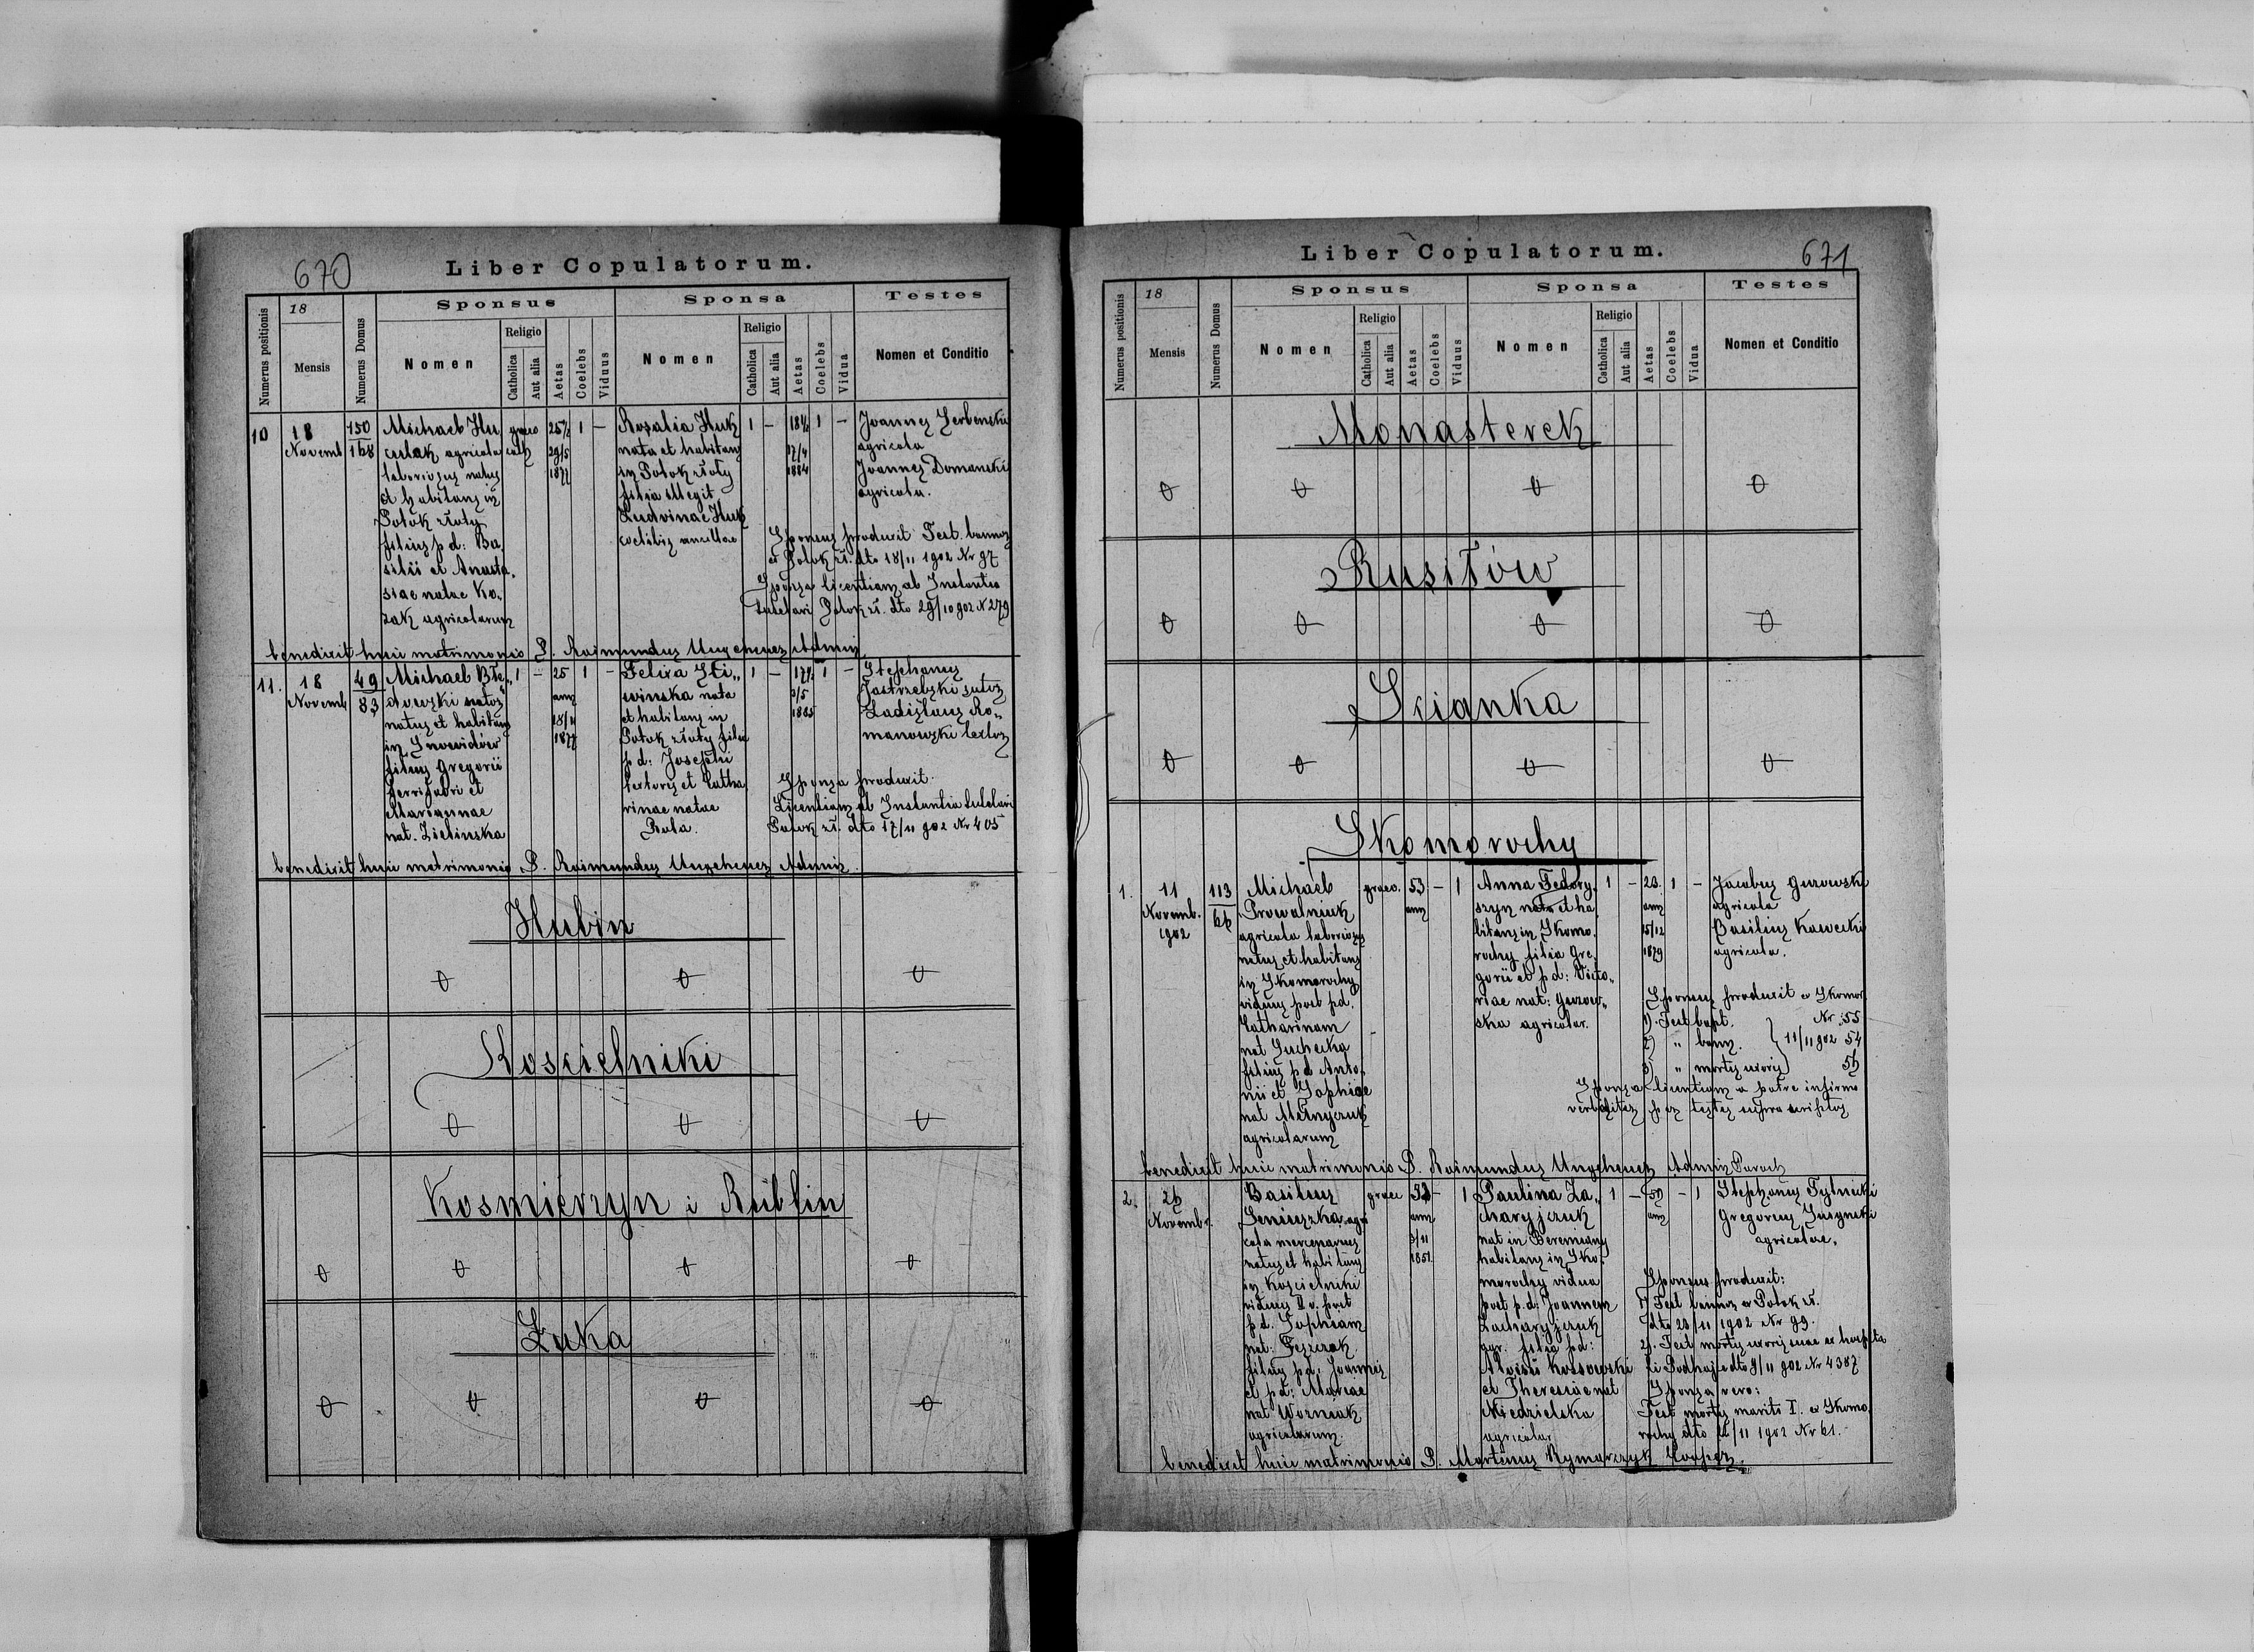 670
Liber Copulatorum.
Numerus positionis
18
Mensis
Numerus Domus
Sponsus
Nomen
Religio
Catholica
Aut alia
Aetas
Coelebs
Viduus
Sponsa
Nomen
Religio
Catholica
Aut alia
Aetas
Coelebs
Vidua
Testes
Nomen et Conditio
10
18
Novemb
150
168
Michael Hu
culak agricola
laboriosus natus
et habitans in
Potok złoty
filius p d: Ba
silii et Anasta,
siae natae Ko„
zak agricolarum
graeo
cath
25½
29/5
1877
1
–
Rozalia Huk
nata et habitans
in Potok złoty
filia illegit
Ludvinae Huk
coelibis ancillae
1
–
18½
17/4
1884
1
–
Joannes Serbenski
agricola
Joannes Domanski
agricola.
Sponsus produxit Test. bannor
ex Potok zł. dto 18/11 1902 Nr 97
Sponsa licentiam ab Instantia
tutelari Potok zł. dto 29/10 902 N 279
benedixit huic matrimonio P. Raimundus Ungeheuer Admin
11.
18
Novemb
49
83
Michael Błe„
dowski sutor
natus et habitans
in Snowidów
filius Gregorii
ferrifabri et
Mariannae
nat. Zielinska
1
–
25
ann
18/11
1877
1
–
Felixa Sli„
winska nata
et habitans in
Potok złoty filia
p d: Josephi
textoris et Catha
rinae natae
Ruta.
1
–
17½
3/5
1885
1
–
Stephanus
Jastrzebski sutor
Ladislaus Ro„
manowski textor
Sponsa produxit
Licentiam ab Instantia tutelari
Potok zł. dto 17/11 902 Nr 405
benedixit huic matrimonio P. Raimundus Ungeheuer Admin.
Hubin
Koscielniki
Kosmierzyn i Rublin
Łuka
671
Liber Copulatorum.
Numerus positionis
18
Mensis
Numerus Domus
Sponsus
Nomen
Religio
Catholica
Aut alia
Aetas
Coelebs
Viduus
Sponsa
Nomen
Religio
Catholica
Aut alia
Aetas
Coelebs
Vidua
Testes
Nomen et Conditio
Monasterek
Rusiłów
Scianka
Skomorochy
1.
11
Novemb.
1902
113
66
Michael
Prowalniuk
agricola laboriosus
natus et habitans
in Skomorochy
viduus post pd.
Catharinam
nat Suchecka
filius p d Anto„
nii et Sophiae
nat Melnyczuk
agricolarum
graeo.
53
ann
–
1
Anna Fedory,
szyn nata et ha
bitans in Skomo.
rochy filia Gre,
gorii et p d: Victo„
riae nat: Gurow„
ska agricolar.
1
–
23.
ann
15/12
1879
1
–
Jacobus Gurowski
agricola
Basilius Kawecki
agricola.
Sponsus produxit ex Skomor
1). Test bapt. Nr 55
2) „ bann. 11/11 902 54
3) „ mortis uxoris 56
Sponsa licentiam a patre infirmo
verbaliter per testes supra scriptos
benedixit huic matrimonio P. Raimundus Ungeheuer Admin Paroch
2.
26
Novembr.
Basilius
agri
cola mercenarius
natus et habitans
in Koscielniki
viduus II v. post
p d. Sophiam
nat.
filius p d. Joannis
et p d: Mariae
nat Wozniak
agricolarum.
graec
ann
3/11
1851
–
1
Paulina Za„
charyjczuk
nat in Beremiany
habitans in Sko„
morochy vidua
post p. d: Joannem
Zacharyjczuk
agr. filia p d:
Aloisii Kossowski
et Theresiae nat
Niedzielska
agricolar.
1
–
50
ann
–
1
Stephanus Tytnicki
Gregorius
agricolae.
Sponsus produxit:
1) Test bannor ex Potok zł.
dto 23/11 1902 Nr 99.
2). Test mortis uxoris suae ex hospita
li Podhajce dto 9/11 902 Nr 4387
Sponsa vero:
Test mortis mariti I. ex Skomo,
rochy dto /11 1902 Nr 61.
benedixit huic matrimonio P. Martinus Rymarczyk Cooper.